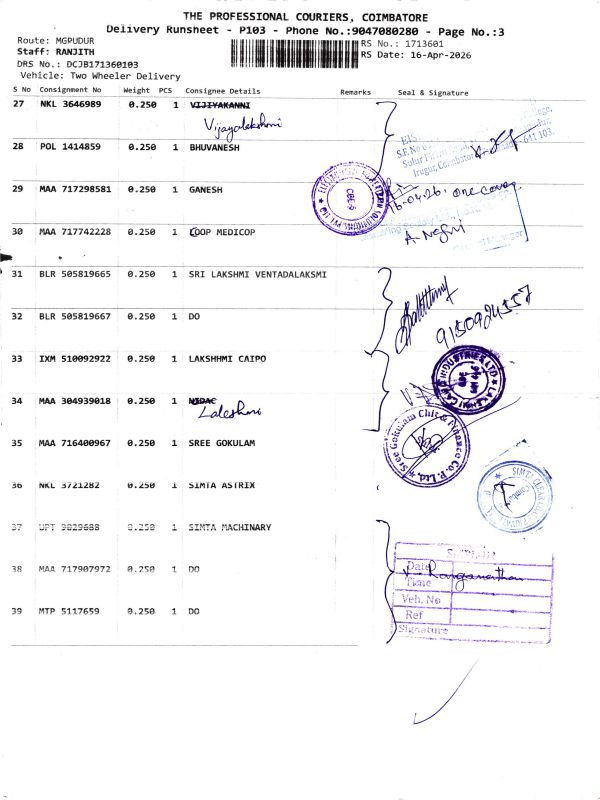 THE PROFESSIONAL COURIERS, COIMBATORE
Delivery Runsheet - P103 - Phone No.:9047080280 - Page No.:3
Route: MGPUDUR
RS No.: 1713601
Staff: RANJITH
RS Date: 16-Apr-2026
DRS No.: DCJB171360103
Vehicle: Two Wheeler Delivery
S No Consignment No Weight PCS Consignee Details Remarks Seal & Signature
27 NKL 3646989 0.250 1 VIJIYAKANNI
Vijayalakshmi
28 POL 1414859 0.250 1 BHUVANESH
29 MAA 717298581 0.250 1 GANESH
16-04-26, one cover
30 MAA 717742228 0.250 1 COOP MEDICOP
31 BLR 505819665 0.250 1 SRI LAKSHMI VENTADALAKSMI
32 BLR 505819667 0.250 1 DO
9150924557
33 IXM 510092922 0.250 1 LAKSHHMI CAIPO
34 MAA 304939018 0.250 1
35 MAA 716400967 0.250 1 SREE GOKULAM
Sree Gokulam Chit & Finance Co. P. Ltd.
36 NKL 3721282 0.250 1 SIMTA ASTRIX
37 UPT 9829688 0.250 1 SIMTA MACHINARY
38 MAA 717907972 0.250 1 DO
Date
Time
Veh. No
Ref
Signature
39 MTP 5117659 0.250 1 DO